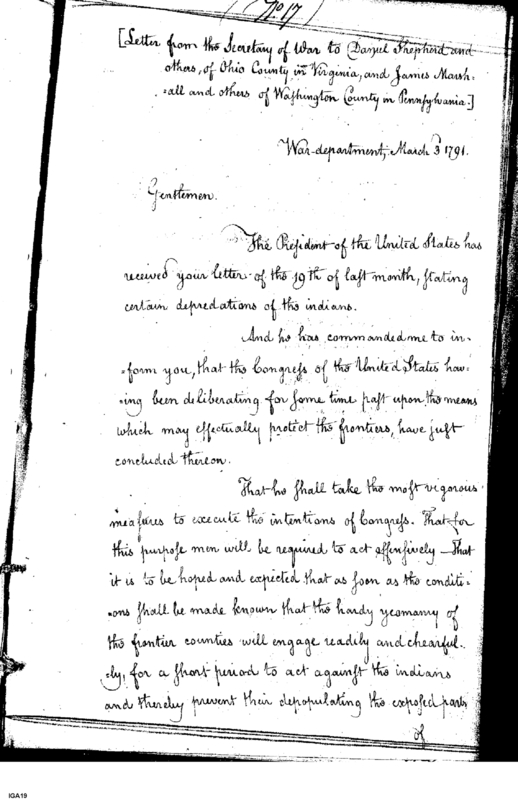 (No 17)
[Letter from the Secretary of War to Daniel Shepherd and
others, of Ohio County in Virginia, and James Marsh-
-all and others of Washington County in Pennsylvania.]
War-department, March 3d 1791.
Gentlemen.
The President of the United States has
received your letter of the 19th of last month, stating
certain depredations of the indians.
And he has commanded me to in-
-form you, that the Congress of the United States hav-
-ing been deliberating for some time past upon the means
which may effectually protect the frontiers, have just
concluded thereon.
That he shall take the most vigorous
measures to execute the intentions of Congress. That for
this purpose men will be required to act offensively—That
it is to be hoped and expected that as soon as the conditi-
-ons shall be made known that the hardy yeomanry of
the frontier counties will engage readily and chearful-
-ly, for a short period to act against the indians
and thereby prevent their depopulating the exposed parts
of
IGA19